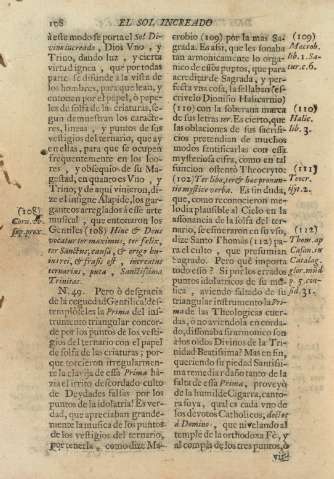 108 EL SOL INCREADO
à este modo se porta el Sol Di-
vino increado, Dios Vno, y
Trino, dando luz, y cierta
virtud ignea, que por todas
parte se difunde à la vista de
los hombres, para que lean, y
entonen por el papel, ò pape-
les de solfa de criaturas, se-
gun demuestran los caracte-
res, lineas, y puntos de sus
vestigios del ternario, que ay
en ellas, para que se ocupen
frequentemente en los loo-
res, y obsequio de su Ma-
gestad, en quanto Vno, y
Trino; y de aqui vinieron, di-
ze el insigne Alapide, los gar-
gantèos arreglados à este arte
musical, que entonaron los
Gentiles (108) Hinc & Deus
vocatur ter maximus, ter felix,
ter Sanctus, causa, & origo en-
intrei,
ternarius, puta, Sanctissima
Trinitas.
(108)
N. 49. Pero ò desgracia
de la ceguedad Gentilica! des-
templòseles la Prima del ins-
trumento triangular concor-
de por los puntos de los vesti-
gios del ternario con el papel
de solfa de las criaturas; por-
que torcieron irregularmen-
te la clavija de essa Prima ha-
zia el irrito descordado culto
de Deydades falsas por los
puntos de la idolatria! Es ver-
dad, que apreciaban grande-
mente la musica de los puntos
de los vestigios del ternario,
por tenerla, como dize Ma-
crobio (109) por la mas Sa-
grada. Es assi, que les sonaba
tan armonicamente lo orga-
nico de essos puntos, que para
acreditar de Sagrada, y per-
fecta vna cosa, la sellaban (es-
crivelo Dionisio Halicarnio)
(110) con la soberana marca
de sus letras ter. Es cierto, que
las oblaciones de sus sacrifi-
cios pretendian de muchos
modos santificarlas con essa
mysteriosa cifra, como en tal
funcion ostente Theocryto
(111) Ter libo, terque hac pronun-
tio mystica verba. Es sin duda,
que, como reconocieron me-
lodia plausible al Cielo en la
assonancia de la solfa del ter-
nario, se esmeraron en su vso,
dize Santo Thomàs (112) pa-
ra el culto, que presumian
Sagrado. Pero què importa
todo esso? Si por los errados
puntos idolatricos de su mu-
sica, aviendo faltado de su
triangular instrumento la Pri-
ma de las Theologicas cuer-
das, ò no aviendola encorda-
do, disonaba su armonico son
à los oidos Divinos de la Tri-
nidad Beatissima! Mas en fin,
queriendo su piedad Santissi-
ma remediar daño tanto de la
falta de essa Prima, proveyò
de la humilde Cigarra, canto-
ra suya, qual es cada vno de
los devotos Catholicos,
à Domino, que nivelando al
temple de la orthodoxa Fè, y
al compàs de los tres puntos, ò
(109)
Macrob.
lib. 1. Sa-
tur. c. 6.
(110)
Halic.
lib. 3.
(111)
(112)
Thom. ap